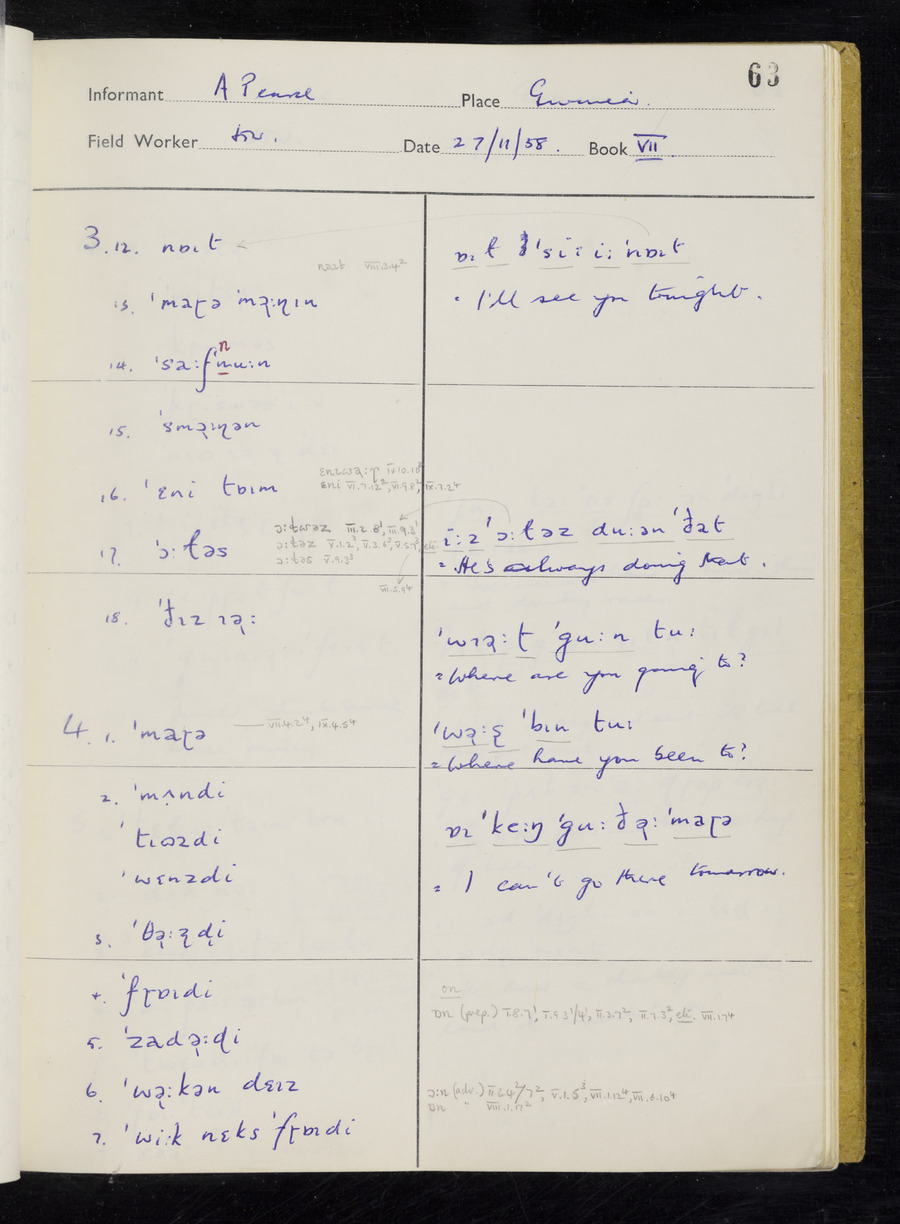 63
Informant A Pearse Place Gwinear.
Field Worker Date 27/11/58. Book VII
3.12. nɒɪt
nɒɪt VIII.3.4²
13. ˈmaɽə ˈməːɳɪn
14. ˈsaːfˈnuːn
n
15. ˈsməːɳən
16. ˈɛni tɒɪm
ɛni VI.7.12², VI.9.8², IX.7.24
17. ˈɔːɫəs
ɔːɫwəz III.2.8¹, III.9.3¹
ɔːɫəz V.1.2³, V.3.6², V.5.7³, etc
ɔːɫəs V.9.3³
VII.5.9⁴
18. ˈðɪz ɪəː
4. 1. ˈmaɽə
VII.4.2⁴, IX.4.5⁴
2. ˈmʌndi
ˈtɪʊzdi
ˈwɛnzdi
3. ˈθəːʐɖi
4. ˈfɽɒɪdi
5. ˈzadəːɖi
6. ˈwəːkən dɛɪz
7. ˈwiːk nɛks ˈfɽɒɪdi
ˈsiː iː ˈnɒɪt
= I'll see you tonight.
iːz ˈɔːɫəz duːən ˈðat
= He's always doing that.
ˈwɪəːʈ ˈguːn tuː
= Where are you going to?
ˈwəːʂ ˈbɪn tuː
= Where have you been to?
ɒɪ ˈkeːŋ ˈguː ðəː ˈmaɽə
= I can't go there tomorrow.
on
ɒn (prep.) I.8.7¹, I.9.3¹/4¹, II.3.7², II.7.3², etc. VII.1.7⁴
ɔːn (adv.) V.1.5³, VII.1.12⁴, VII.6.10⁴
ɒn " VIII.1.17²